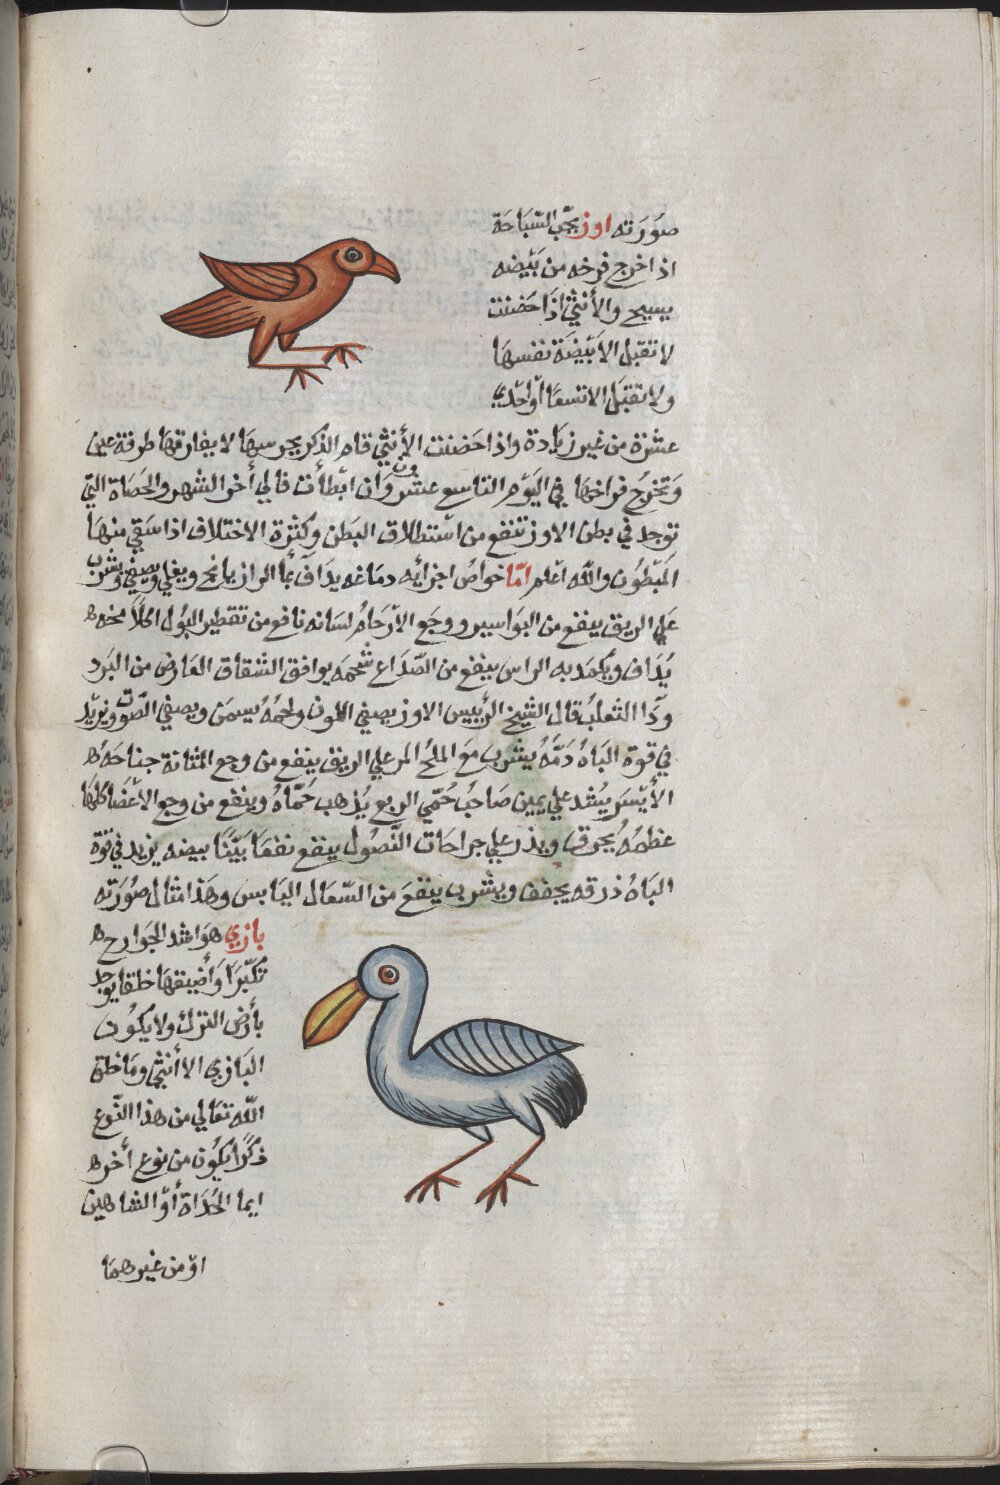 صورته اوز يحب السباحة
اذا خرج فرخه من بيضه
يسبح والأنثي اذا حضنت
لا تقبل الا بيضة نفسها
ولا تقبل الا تسعا أو احدي
عشرة من غير زيادة واذا حضنت الأنثي قام الذكر يحرسها لا يفارقها طرفة عين
وتخرج فراخها في اليوم التاسع عشر وان ابطأت فالي أخر الشهر والحصاة التي
توجد في بطن الاوز تنفع من استطلاق البطن وكثرة الاختلاف اذا سقي منها
المبطون والله اعلم امّا خواص اجزايه دماغه يداف بما الرازيانج ويغلي ويصفي ويشرب
علي الريق ينفع من البواسير ووجع الارحام لسانه نافع من تقطير البول اكلاً مخه
يداف ويكمد به الراس ينفع من الصداع شحمه يوافق الشقاق العارض من البرد
ودآ الثعلب قال الشيخ الرئيس الاوز يصفي اللون ولحمه يسمن ويصفي الصوت ويزيد
في قوة الباه دمه يشرب مع الملح المر علي الريق ينفع من وجع المثانة جناحه
الأيسر يشد علي يمين صاحب حمي الربع يذهب حماه وينفع من وجع الاعضا كلها
عظمه يحرق ويذر علي جراحات النصول ينفع نفعا بيّنا بيضه يزيد في قوة
الباه ذرقه يجفف ويشرب ينفع من السعال اليابس وهذا مثال صورته
بازي هو اشد الجوارح
تكبرا وأضيقها خلقا يوجد
بأرض الترك ولا يكون
البازي الا أنثي وما خلق
الله تعالي من هذا النوع
ذكراً يكون من نوع أخر
ايما الحداة أو الشاهين
او من غيرهما